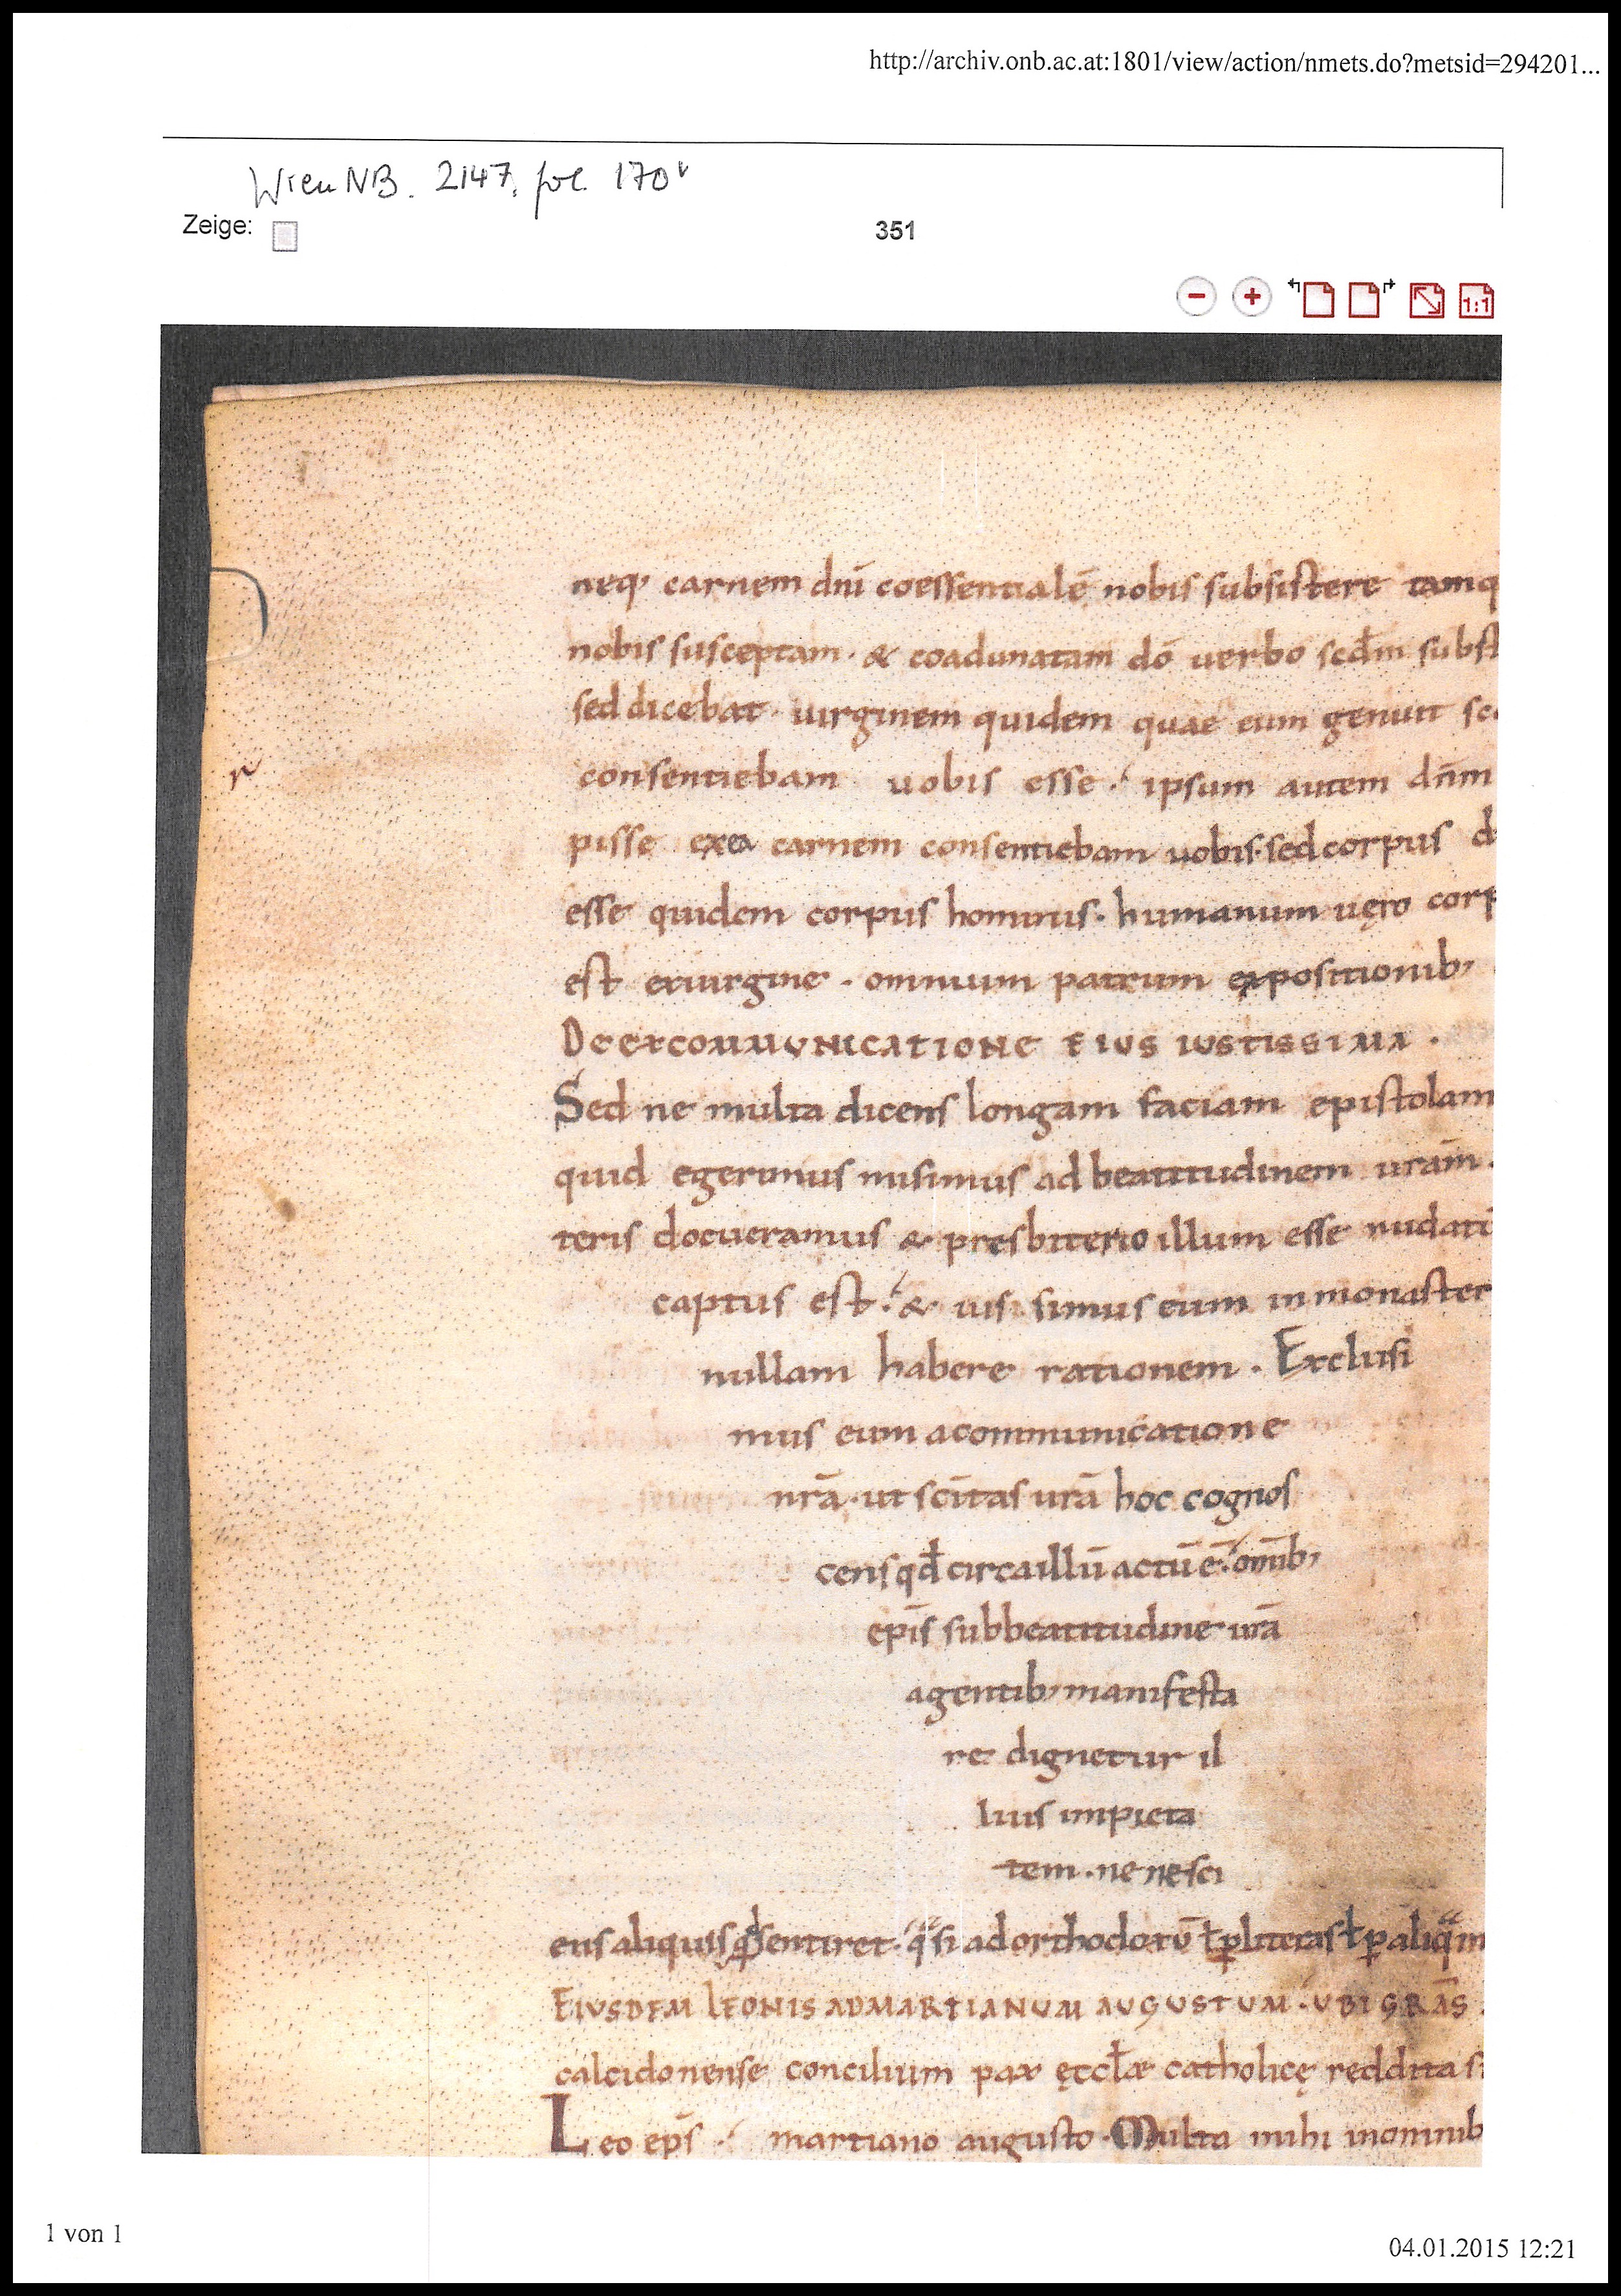 http://archiv.onb.ac.at:1801/view/action/nmets.do?metsid=294201...
Wien NB. 2147, fol. 170v
Zeige:
351
1:1
neq; carnem dn̄i coessentialē nobis subsistere tamq
nobis susceptam · & coadunatam dō uerbo scdm̄ subst
sed dicebat · uirginem quidem quae eum genuit sec
consentiebam uobis esse · ipsum autem dn̄m
pisse exea carnem consentiebam uobis · sed corpus d
esse quidem corpus hominis · humanum uęro corp
est exuirgine · omnium patrum expositionib;
DE EXCOMMUNICATIONE EIUS IUSTISSIMA ·
Sed ne multa dicens longam faciam epistolam
quid egerimus misimus ad beatitudinem uram̄ ·
teris docueramus & presbiterio illum esse nudatū
captus est · & iussimus eum inmonaster
nullam habere rationem · Exclusi
mus eum acommunicatione
nr̄a · ut sc̄itas ur̄a hoc cognos
cens qd̄ circaillū actū ē · om̄ib;
ep̄is subbeatitudine ur̄a
agentib; manifesta
re dignetur il
lius impieta
tem · ne nesci
ens aliquis qd̄ sentiret · qᵃsi ad orthodoxū ł p̱ literas ł p̱ aliqᵃ in
EIUSDEM LEONIS ADMARTIANUM AUGUSTUM · UBI GRĀS
calcidonense concilium pax ęccłae catholicę reddita si
Leo ep̄s · martiano augusto · Multa mihi inomnib
n
1 von 1
04.01.2015 12:21